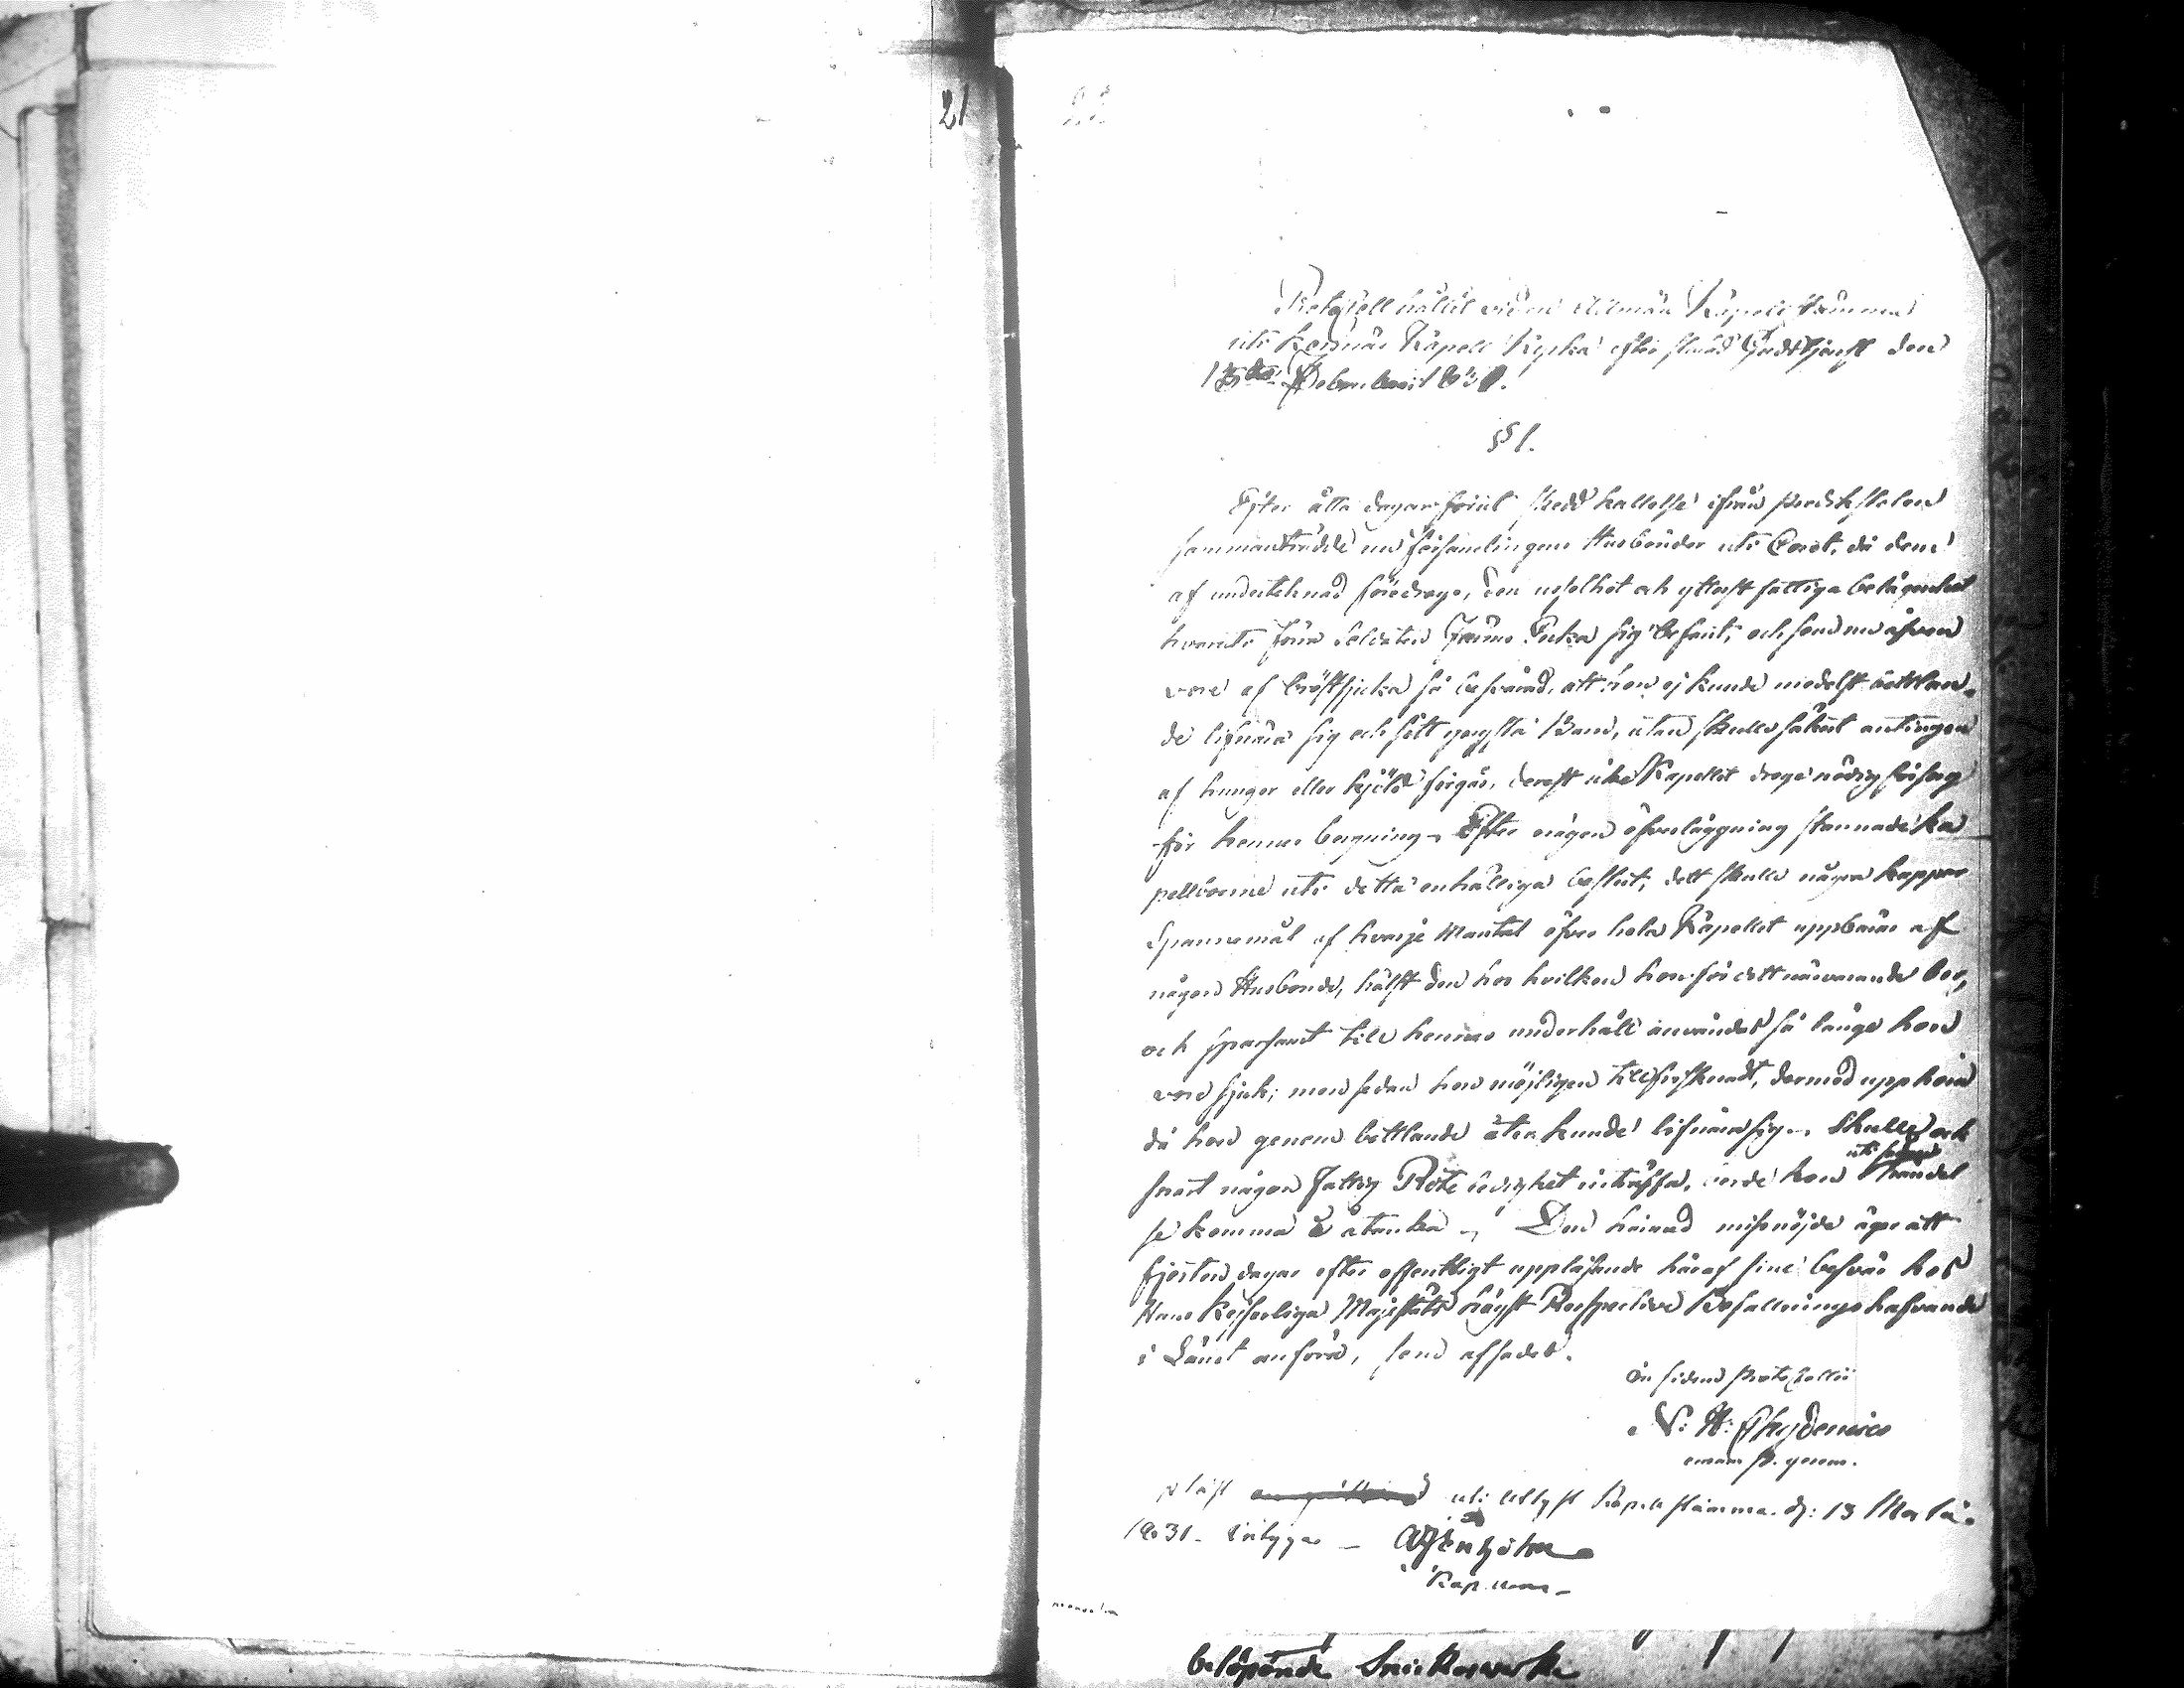 21
22
Protocoll hållit vid en Allmän Kapell stämma
uti Kapell Kyrka efter slutad Gudstjenst den
13de Februarii 1831.
§ 1.
Efter åtta dagar förut skedd kallelse ifrån predikstolen
sammanträdde nu församlingens Husbönder uti då dem
af undertecknad föredrogs, den uselhet och ytterst fattiga belägenhet
hvaruti förra Soldaten sig befant, och som nu äfven
vore af bröstsjuka så besvärad, att hon ej kunde medelst bettlan-
de lifnära sig och sitt yngsta Barn, utan skulle säkert antingen
af hunger eller kjöld förgås, derest icke Kapellet droge nödig försorg
för hennes bergning. Efter någon öfverläggning stannade Ka
pellboerne uti detta enhälliga beslut, dett skulle några kappar
Spannemål af hvarje Mantal öfver hela Kapellet uppbäras af
någon Husbonde, hälst den hos hvilken hon för dett närvarande bor,
och sparsamt till hennes underhåll användas så länge hon
vore sjuk; men sedan hon möjligen tillfrisknadt, dermed upphöra
då hon genom bettlande åter kunde lifnära sig. Skulle och
uti
snart någon Fattig Rote ledighet inträffa, borde hon händel
se komma i åtanka. Den häraf missnöjde äger att
fjorton dagar efter offentligt uppläsande häraf sine besvär hos
Hans Kejserliga Majestäts högst Respective Befallningshafvande
i Länet anföra, som affades.
In fidem Protocollii
N: H: Chydenius
p läst uti Kapell stämma. d: 13 Martii.
1831. intygar
Kap.
belöpande Snickarverke